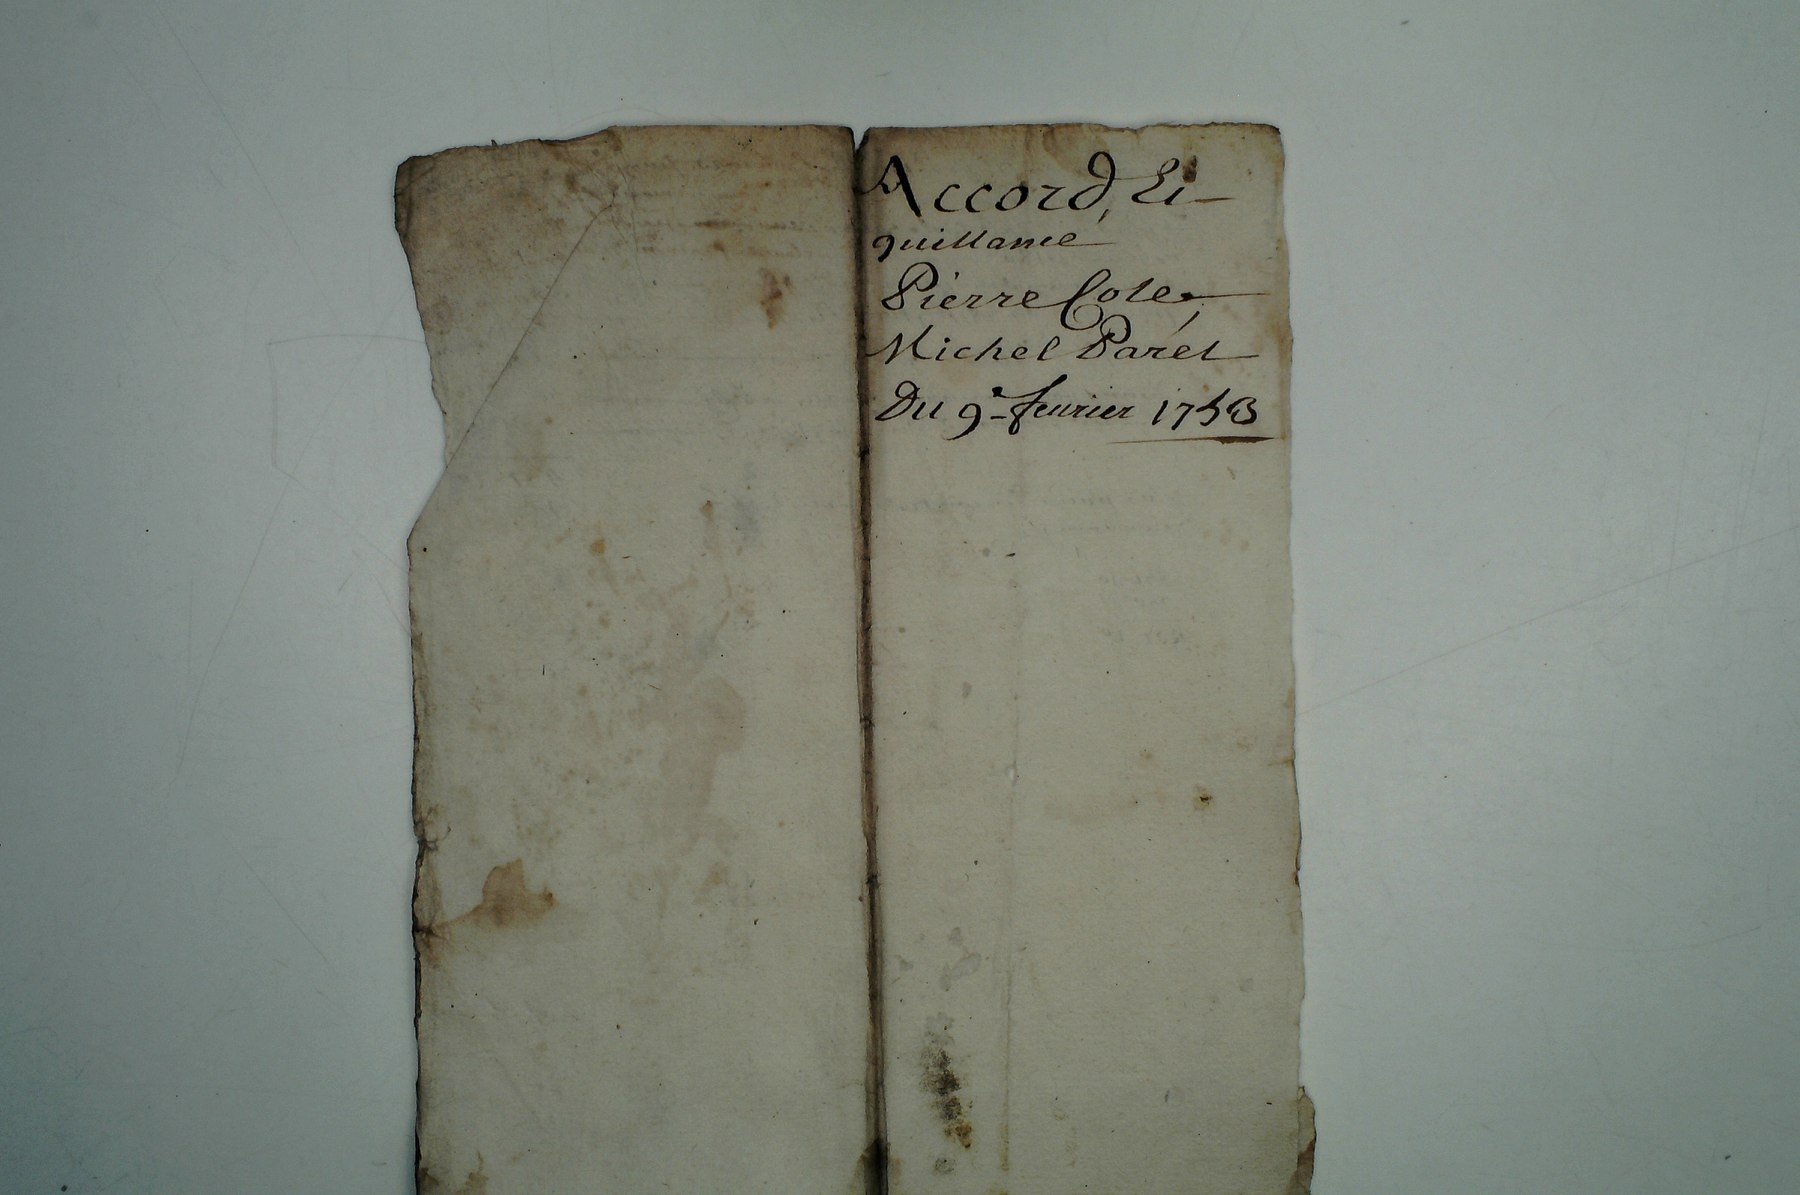 Accord, Et
quittance
Pierre Cote,
Michel Paret
Du 9e fevrier 1753